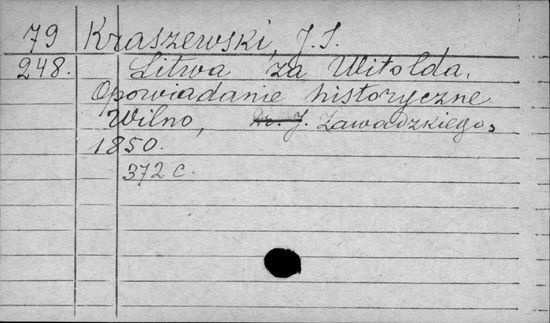 79 Kraszewski, J.I.
248. Litwa za Witolda.
Opowiadanie historyczne
Wilno, Dr. J. Zawadzkiego,
1850.
372 c.